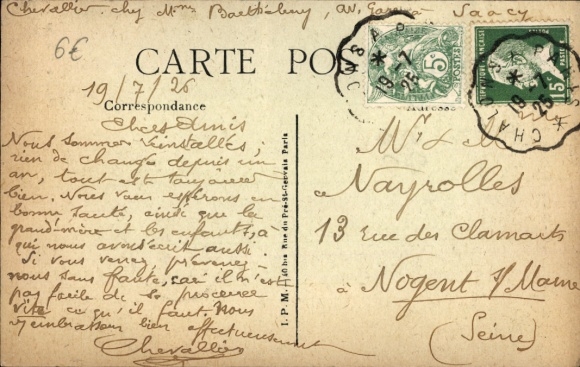 Chevallier chez Mme Barthélemy, av. Saacy
6€
CARTE POS
19/7/25
Correspondance
Adresse
Chers Amis
Nous sommes réinstallés,
rien de changé depuis un
an, tout est toujours
bien. Nous vous espérons en
bonne santé, ainsi que la
grand-mère et les enfants, à
qui nous avons écrit aussi.
Si vous venez, prévenez-
nous sans faute, car il n'est
pas facile de se procurer
vite ce qu'il faut. Nous
vs embrassons bien affectueusement
Chevallier
I. P. M. 10 bis Rue du Pré-St-Gervais Paris
5
POSTES
19-7
25
15
RÉPUBLIQUE FRANÇAISE
19-7
25
Mr & M
Nayrolles
13 rue des Clamarts
à Nogent s/Marne
(Seine)